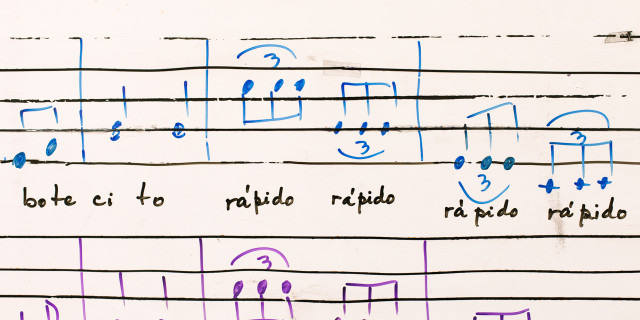 3
3
3
3
bote ci to rápido rápido rápido rápido
3